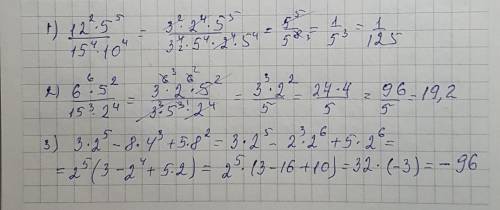 1) 12² · 5⁵ / 15⁴ · 10⁴ = 3² · 2⁴ · 5⁵ / 3⁴ · 5⁴ · 2⁴ · 5⁴ = 5⁵ / 5⁸ ³ = 1 / 5³ = 1 / 125
2) 6⁶ · 5² / 15³ · 2⁴ = 3⁶ ³ · 2⁶ ² · 5² / 3³ · 5³ · 2⁴ = 3³ · 2² / 5 = 24 · 4 / 5 = 96 / 5 = 19,2
3) 3 · 2⁵ - 8 · 4³ + 5 · 8² = 3 · 2⁵ - 2³ · 2⁶ + 5 · 2⁶ =
= 2⁵ (3 - 2⁴ + 5 · 2) = 2⁵ · (3 - 16 + 10) = 32 · (-3) = - 96